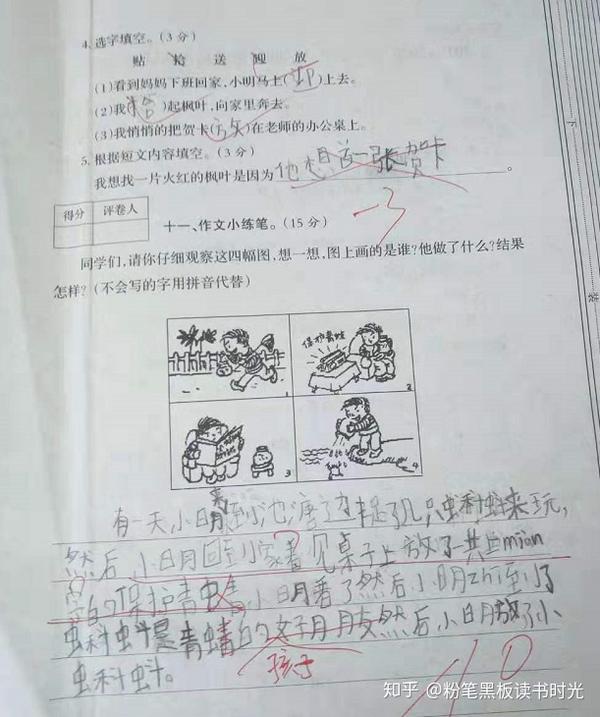 4.选字填空。(3分)
贴 拾 送 迎 放
(1)看到妈妈下班回家,小明马上(迎)上去。
(2)我(拾)起枫叶,向家里奔去。
(3)我悄悄的把贺卡(放)在老师的办公桌上。
5.根据短文内容填空。(3分)
我想找一片火红的枫叶是因为他想送一张贺卡。
-3
得分 评卷人
十一、作文小练笔。(15分)
同学们,请你仔细观察这四幅图,想一想,图上画的是谁?他做了什么?结果
怎样?(不会写的字用拼音代替)
保护青蛙
1
2
3
4
有一天,小明来到池塘边捉了几只虫科蚪来玩,
然后小明回到家看见桌子上放了一共mian
的保护青蛙
小明看了然后小明知道了
虫科蚪是青蛙的孩子
然后小明放了小
虫科蚪。
孩子
知乎 @粉笔黑板读书时光